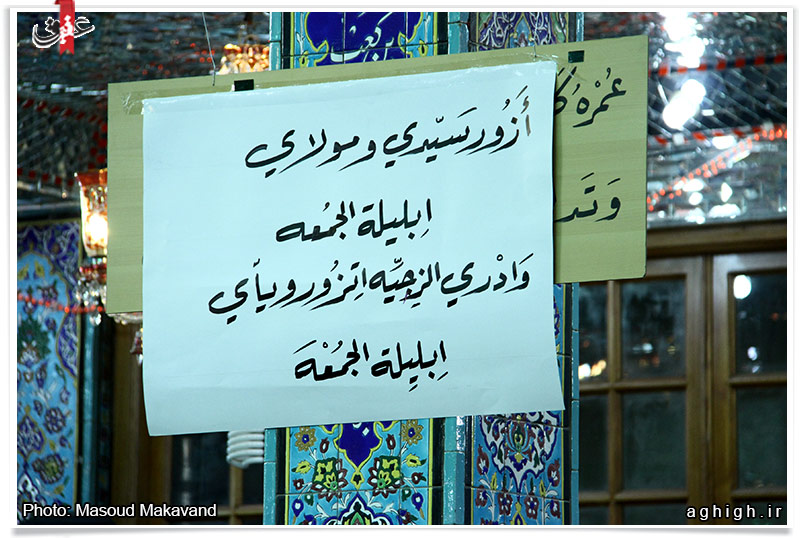 عقیق
أَزُور سَيّدي ومولاي
اِبليلة الجُمعه
وَادْري الزِچيّه اتزُور ويأي
اِبليِلة الجُمُعْهَ
عُمْرَهُ
وَتَد
Photo: Masoud Makavand
aghigh.ir